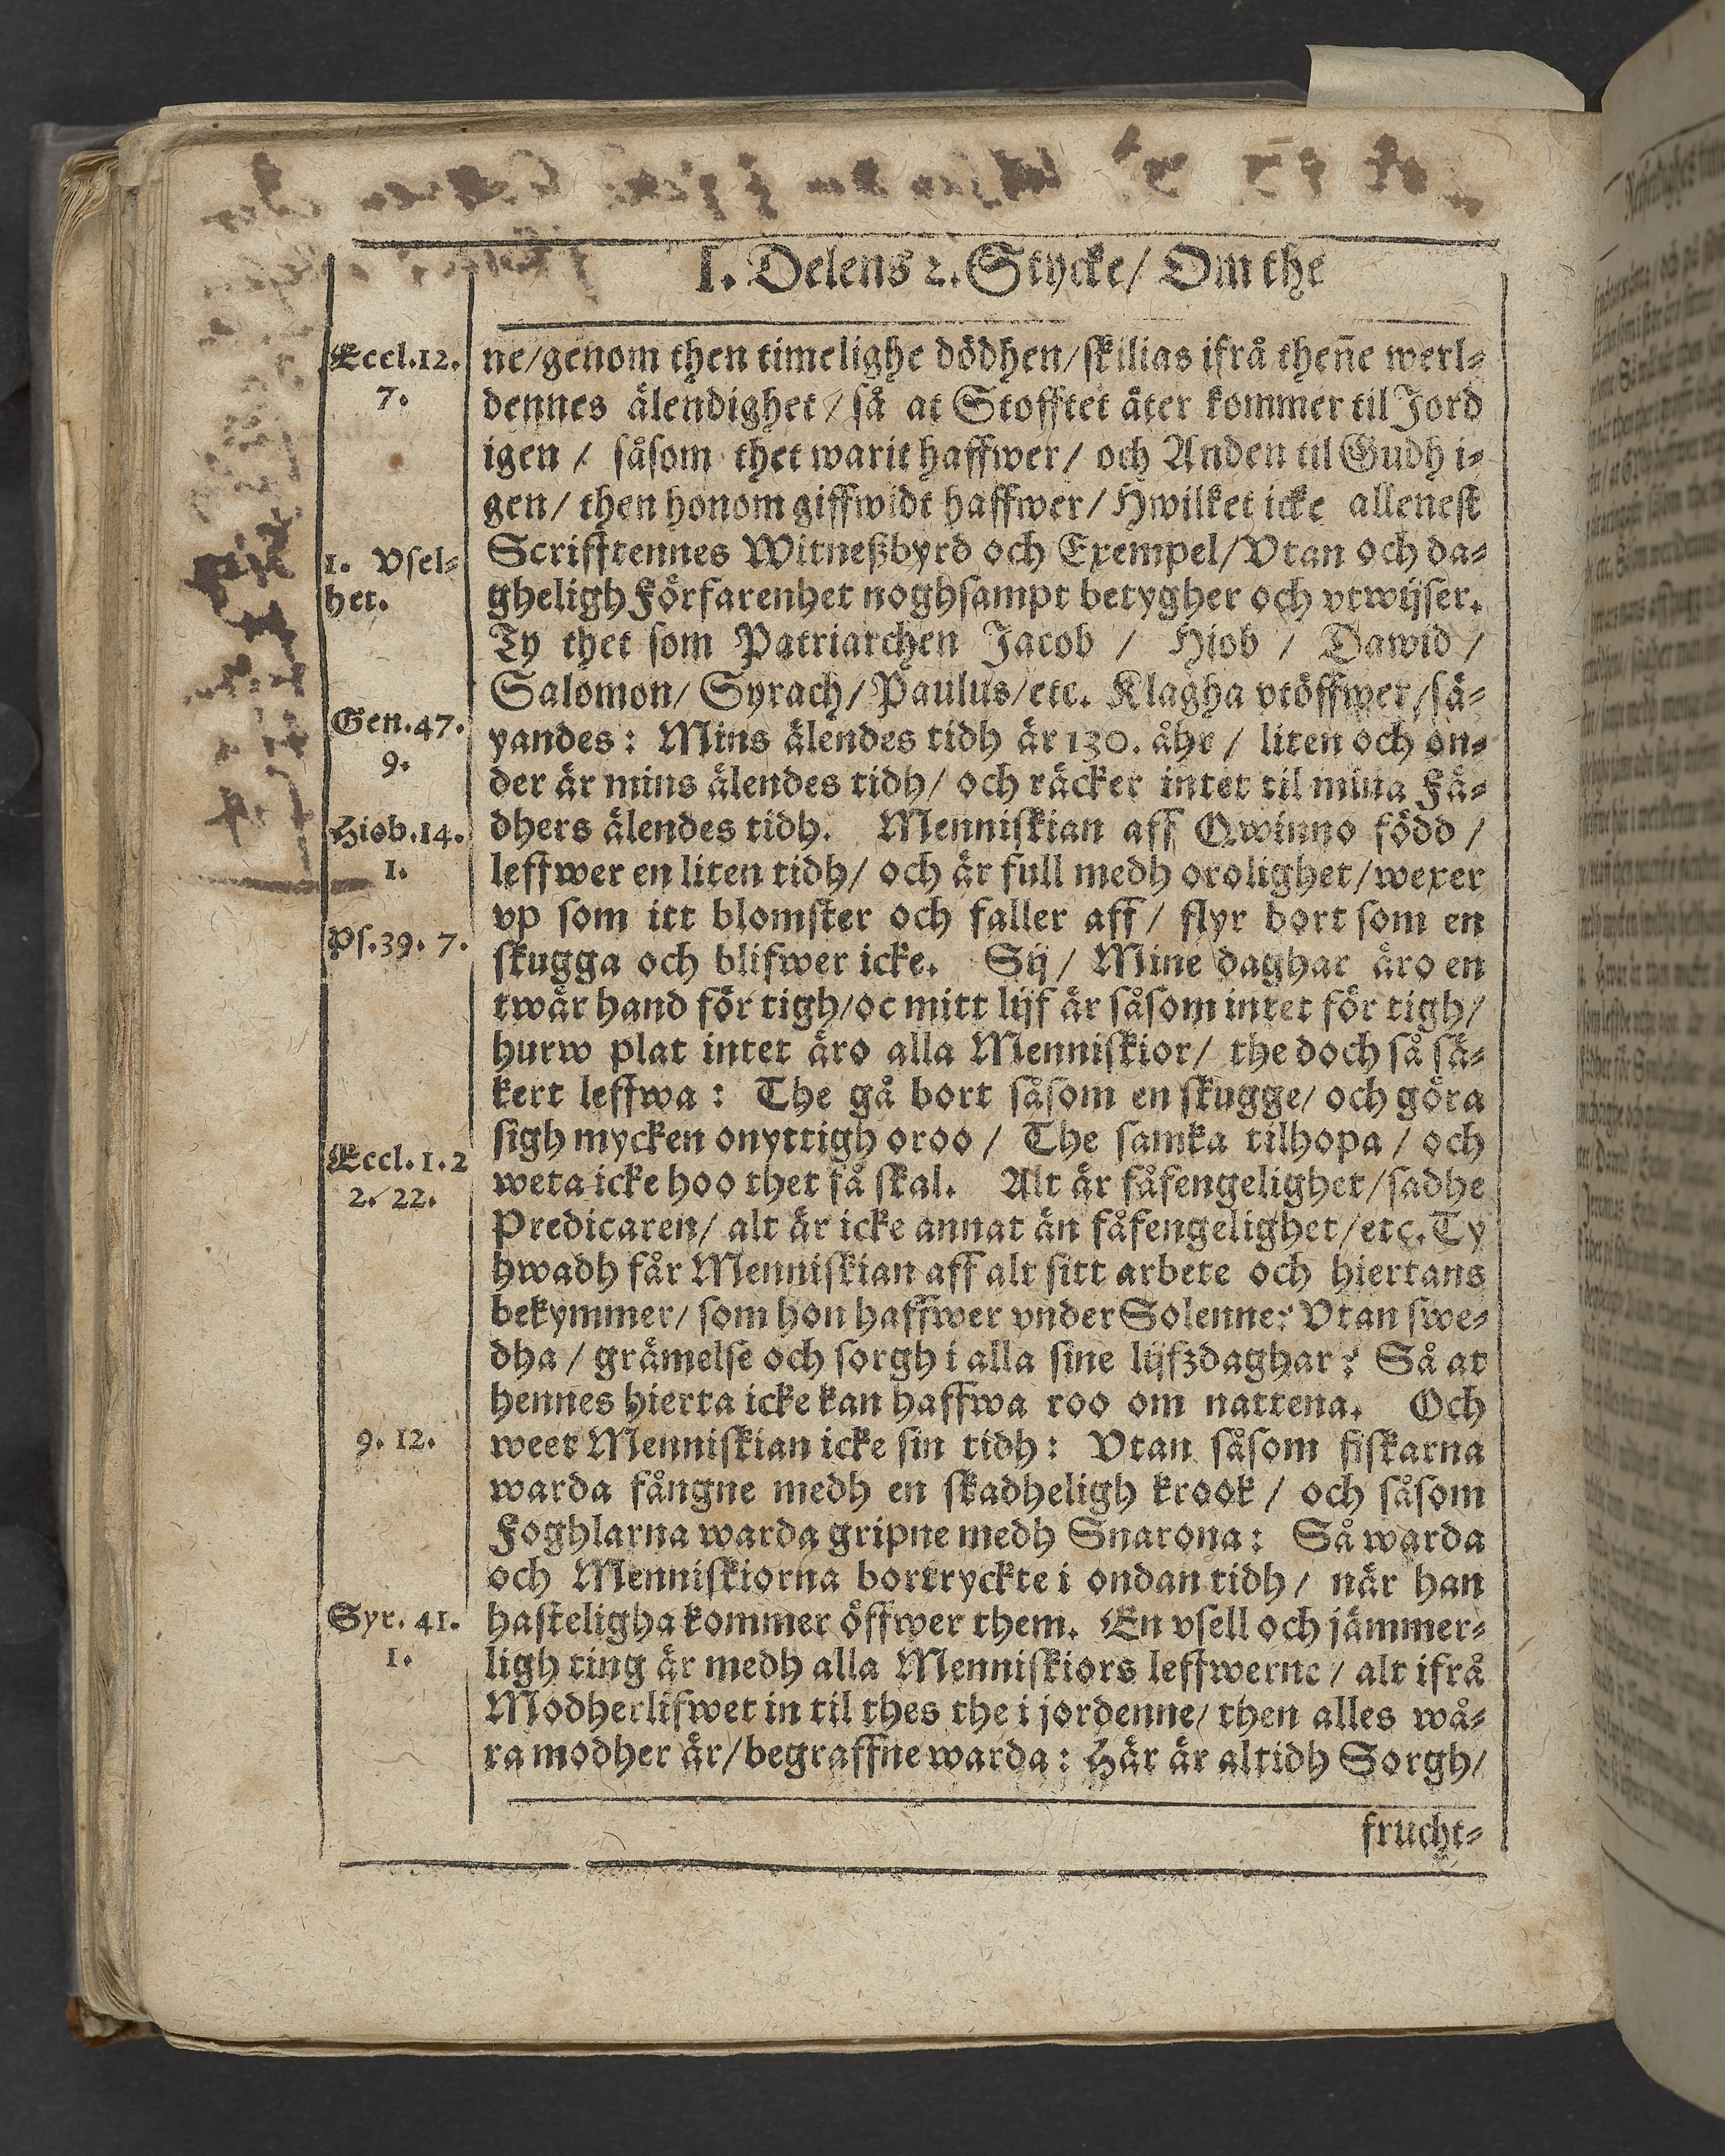 I. Delens 2. Stycke/ Om the
Eccl.12.
7.
1. Vsel-
het.
Gen.47.
9.
Hiob.14.
1.
Ps.39. 7.
Eccl.1.2
2. 22.
9. 12.
Syr. 41.
1.
ne/genom then timelighe dödhen/skilias ifrå then̄e werl-
dennes älendighet/ så at Stofftet åter kommer til Jord
igen / såsom thet warit haffwer/ och Anden til Gudh i-
gen/ then honom giffwidt haffwer/ Hwilket icke allenest
Scrifftennes Witneßbyrd och Exempel/Vtan och da-
gheligh Förfarenhet noghsampt betygher och vtwijser.
Ty thet som Patriarchen Jacob / Hiob / Dawid /
Salomon/ Syrach/ Paulus/etc. Klagha vtöffwer/sä-
yandes: Mins älendes tidh är 130. åhr / liten och on-
der är mins älendes tidh/ och räcker intet til mina Fä-
dhers älendes tidh. Menniskian aff Qwinno född /
leffwer en liten tidh/ och är full medh orolighet/wexer
vp som itt blomster och faller aff/ flyr bort som en
skugga och blifwer icke. Sij/ Mine daghar äro en
twär hand för tigh/oc mitt lijf är såsom intet för tigh/
hurw plat intet äro alla Menniskior/ the doch så sä-
kert leffwa: The gå bort såsom en skugge/ och göra
sigh mycken onyttigh oroo / The samka tilhopa / och
weta icke hoo thet få skal. Alt är fåfengelighet/sadhe
Predicaren/ alt är icke annat än fåfengelighet/etc. Ty
hwadh får Menniskian aff alt sitt arbete och hiertans
bekymmer/ som hon haffwer vnder Solenne? Vtan swe-
dha / grämelse och sorgh i alla sine lijfzdaghar? Så at
hennes hierta icke kan haffwa roo om nattena. Och
weet Menniskian icke sin tidh: Vtan såsom fiskarna
warda fångne medh en skadheligh krook / och såsom
Foghlarna warda gripne medh Snarona: Så warda
och Menniskiorna bortryckte i ondan tidh/ när han
hasteligha kommer öffwer them. En vsell och jämmer-
ligh ting är medh alla Menniskiors leffwerne/ alt ifrå
Modherlifwet in til thes the i jordenne/ then alles wå-
ra modher är/begraffne warda: Här är altidh Sorgh/
frucht-